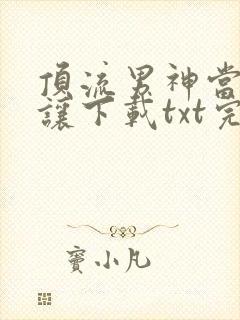 頂流男神當
讓下載txt完
竇小凡